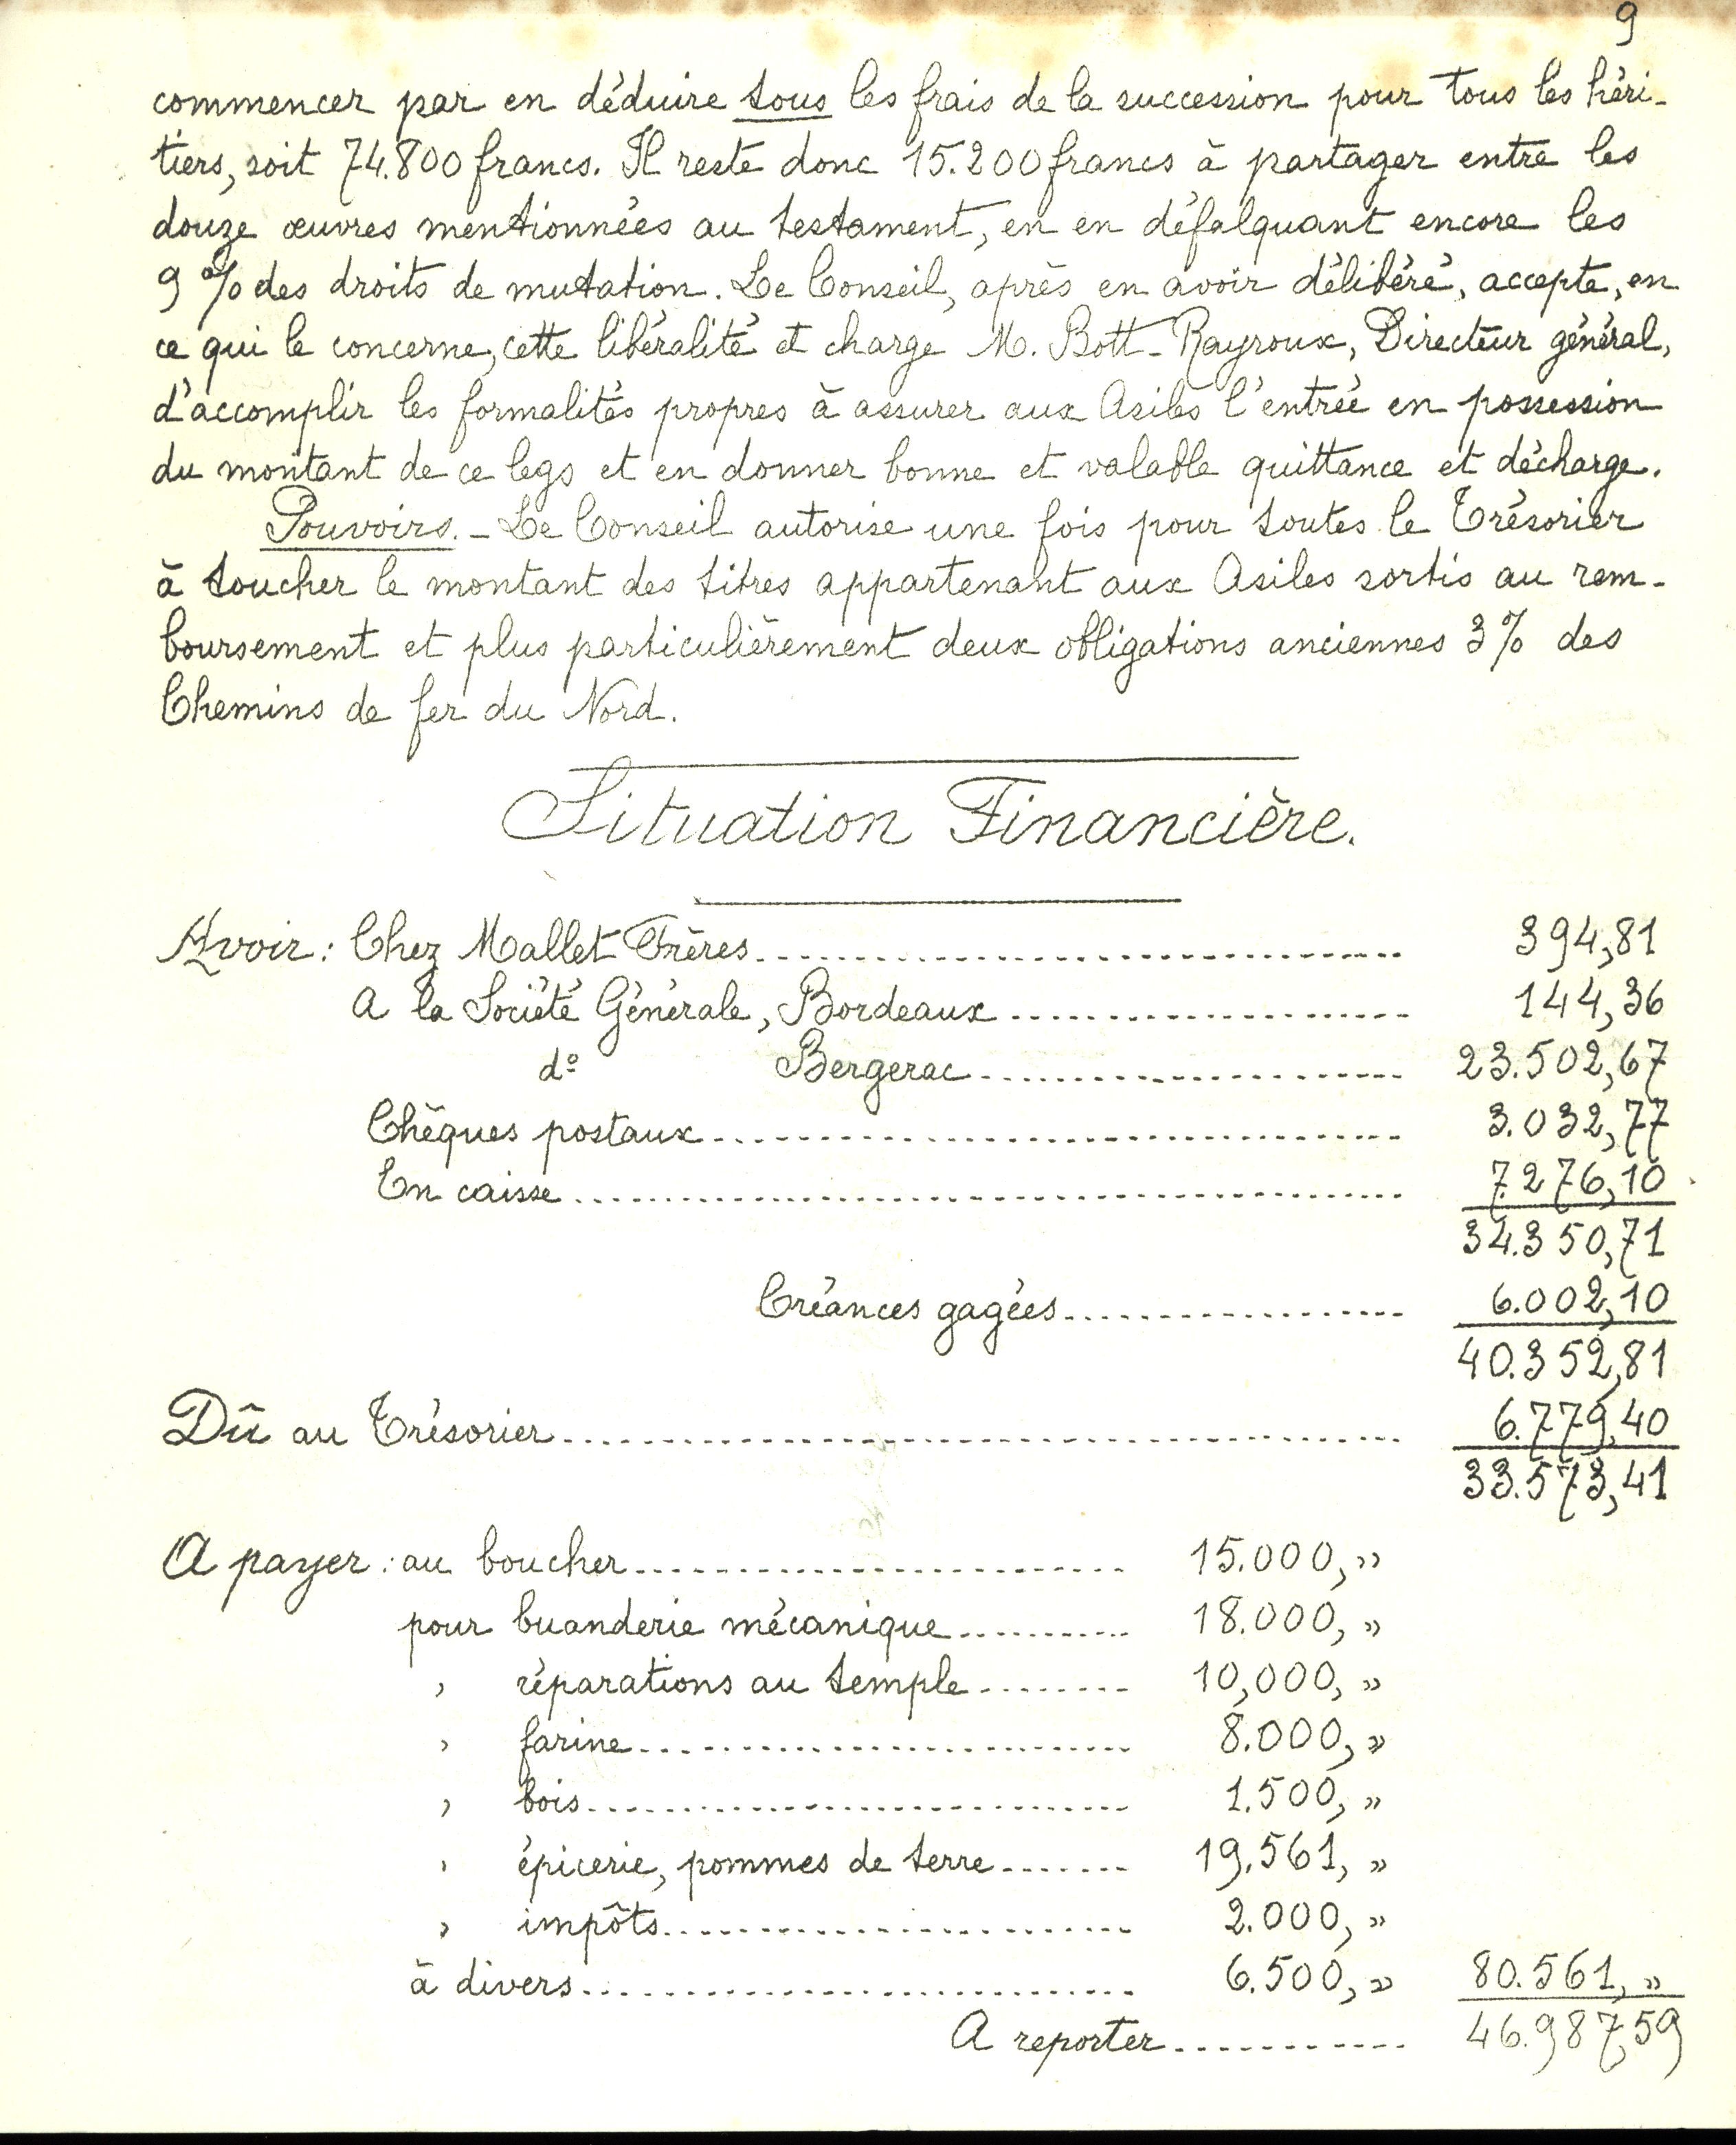 9
commencer par en déduire tous les frais de la succession pour tous les héri-
tiers, soit 74.800 francs. Il reste donc 15.200 francs à partager entre les
douze œuvres mentionnées au testament, en en défalquant encore les
9 % des droits de mutation. Le Conseil, après en avoir délibéré, accepte, en
ce qui le concerne, cette libéralité et charge M. Bott-Rayroux, Directeur général,
d'accomplir les formalités propres à assurer aux Asiles l'entrée en possession
du montant de ce legs et en donner bonne et valable quittance et décharge.
Pouvoirs. - Le Conseil autorise une fois pour toutes le Trésorier
à toucher le montant des titres appartenant aux Asiles sortis au rem-
boursement et plus particulièrement deux obligations anciennes 3 % des
Chemins de fer du Nord.
Situation Financière.
Avoir : Chez Mallet Frères 394,81
A la Société Générale, Bordeaux 144,36
dº Bergerac 23.502,67
Chèques postaux 3.032,77
En caisse 7.276,10
34.350,71
Créances gagées 6.002,10
40.352,81
Dû au Trésorier 6.779,40
33.573,41
A payer : au boucher 15.000, »
pour buanderie mécanique 18.000, »
, réparations au temple 10,000, »
, farine 8.000, »
, bois 1.500, »
, épicerie, pommes de terre 19.561, »
, impôts 2.000, »
à divers 6.500, » 80.561, »
A reporter 46.987,59